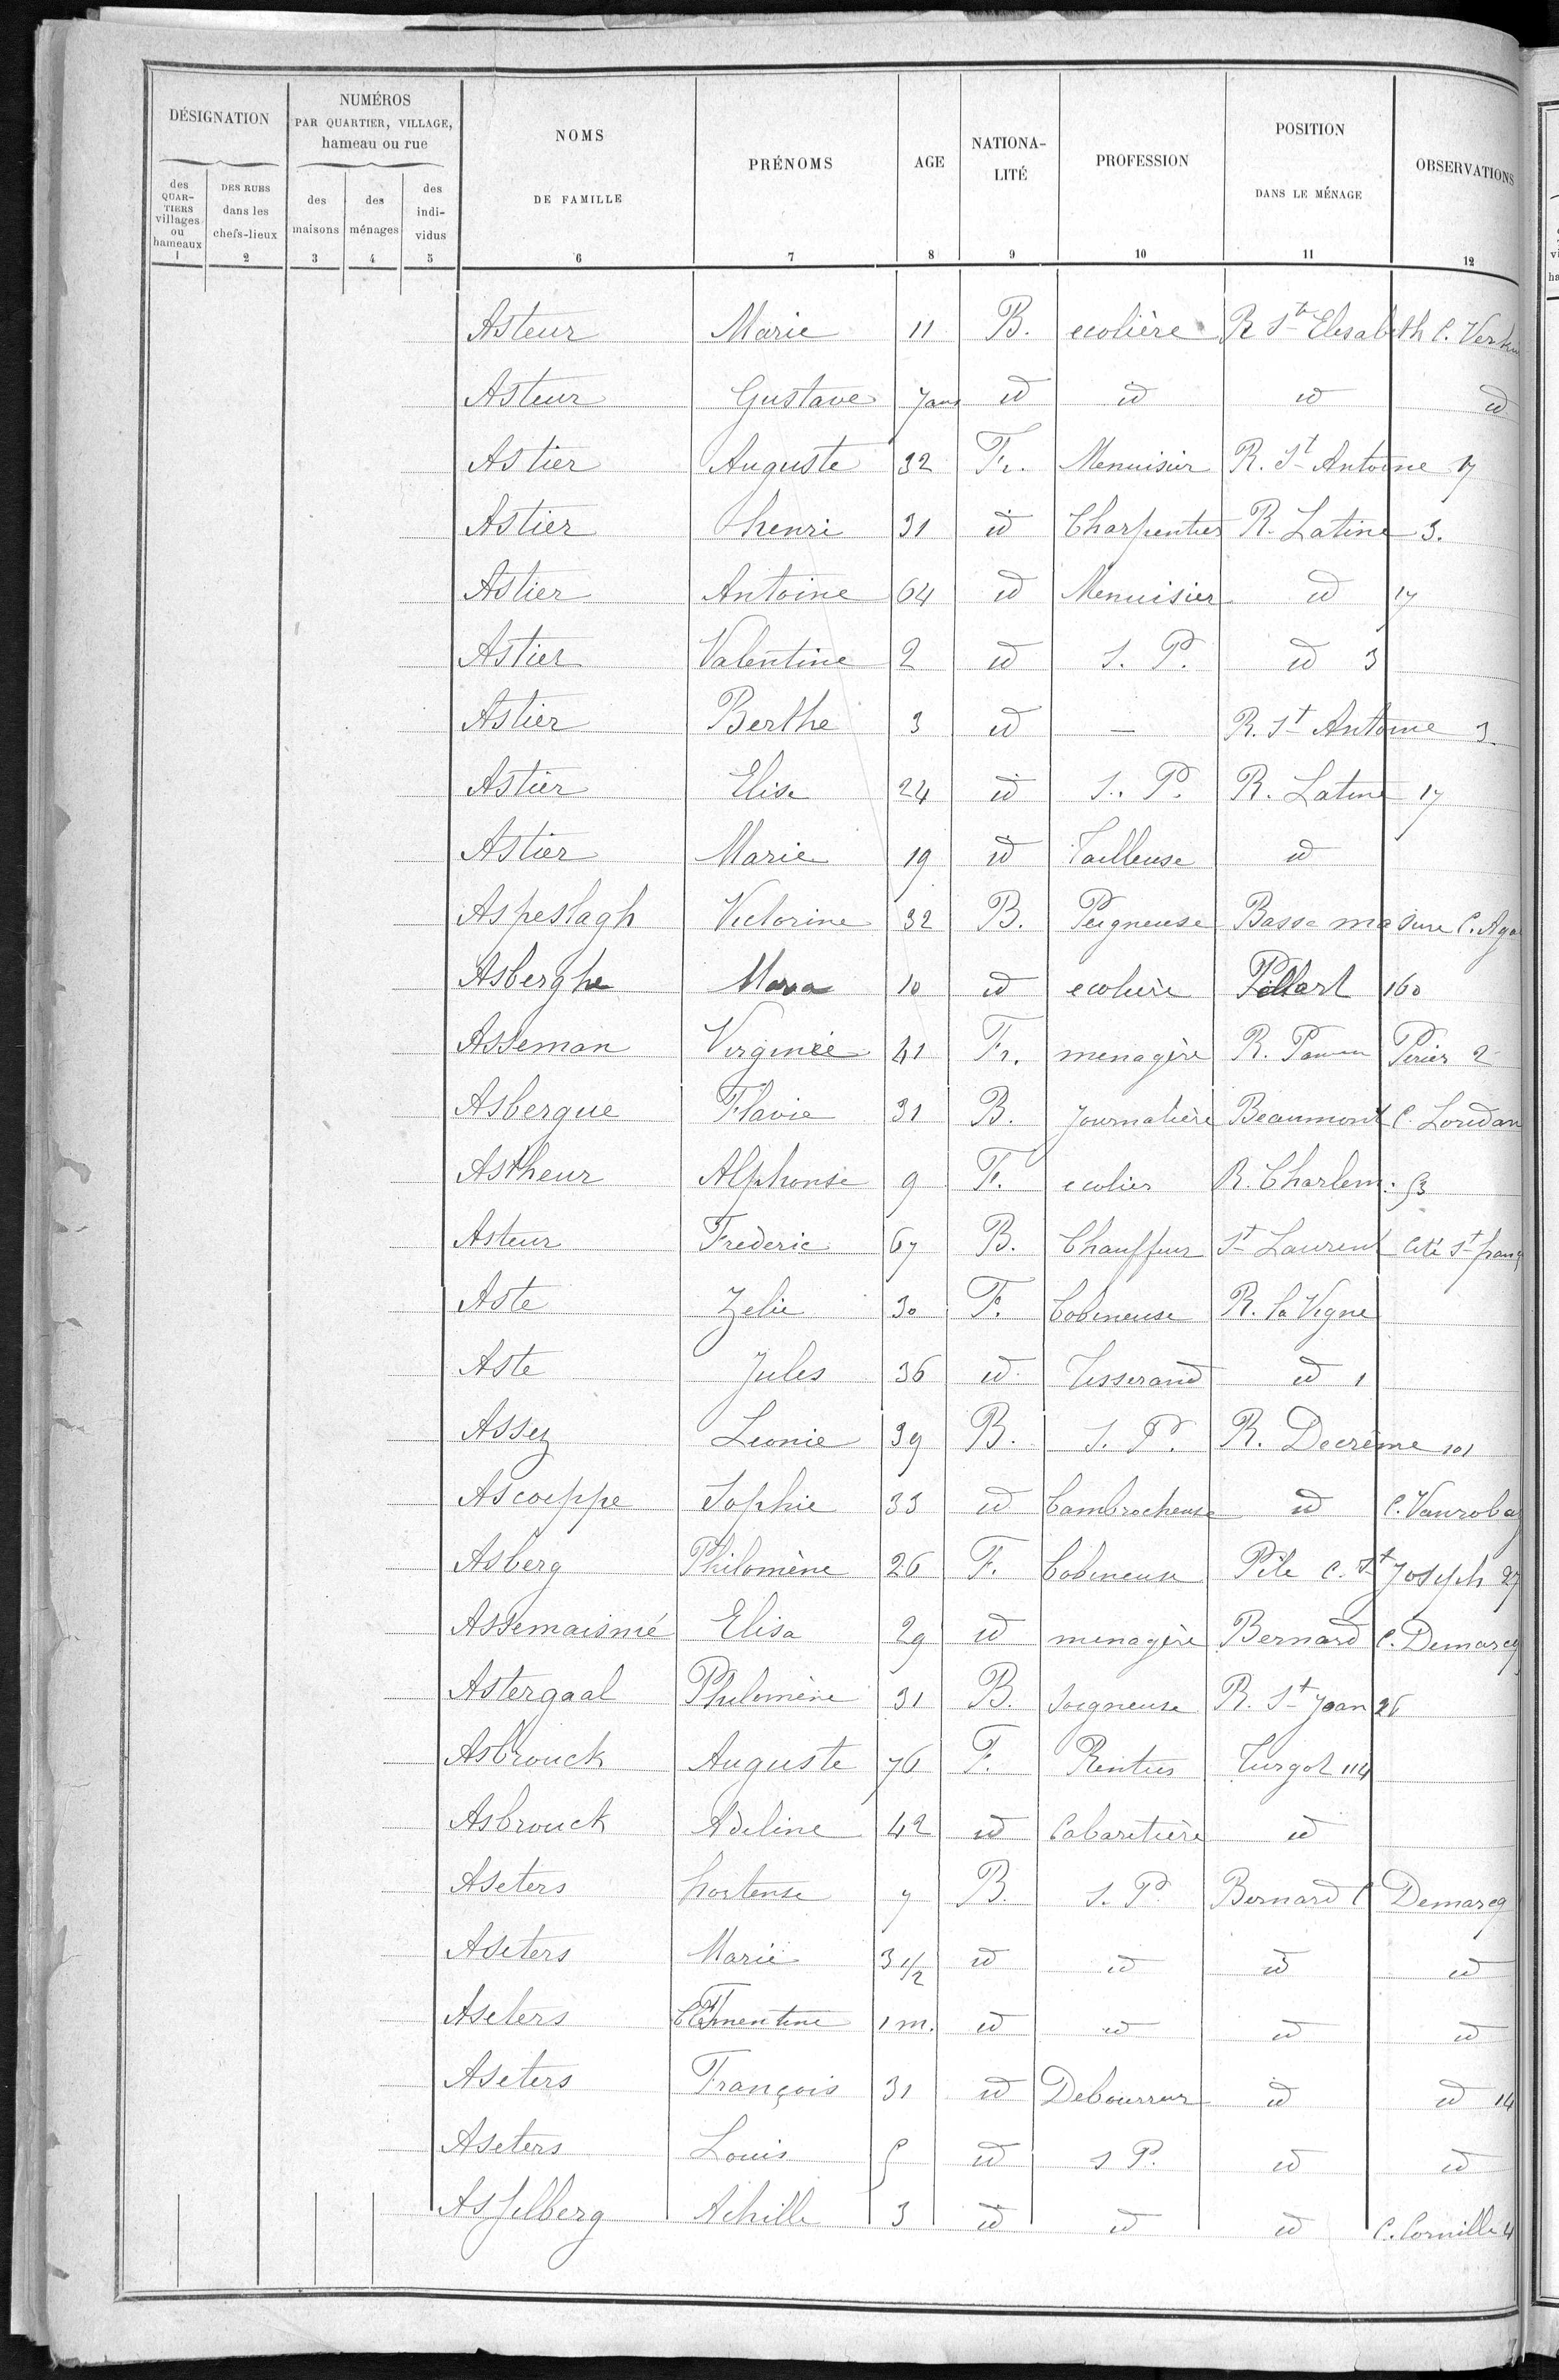 DÉSIGNATION
NUMÉROS
PAR QUARTIER, VILLAGE,
hameau ou rue
NOMS
DE FAMILLE
PRÉNOMS
AGE
NATIONA-
LITÉ
PROFESSION
POSITION
DANS LE MÉNAGE
OBSERVATIONS
des
QUAR-
TIERS
villages
ou
hameaux
DES RUES
dans les
chefs-lieux
des
maisons
des
ménages
des
indi-
vidus
1 2 3 4 5 6 7 8 9 10 11 12
Asteur Marie 11 B. ecolière R Ste Elesabeth C.
Asteur Gustave 7 ans id id id id
Astier Auguste 32 Fr. Menuisier R. St Antoine 17
Astier henri 31 id Charpentier R. Latine 3.
Astier Antoine 64 id Menuisier id 17
Astier Valentine 2 id S. P. id 3
Astier Berthe 3 id — R. St Antoine 3.
Astier Elise 24 id S. P. R. Latine 17
Astier Marie 19 id Tailleuse id
Aspeslagh Victorine 32 B. Peigneuse Basse masure C. Aga
Asberghe Maria 10 id ecolière Pellart 160
Asseman Virginie 41 Fr. menagère R. Perier 2
Asbergue Flavie 31 B. Journalière Beaumont C. Loridan
Astheur Alphonse 9 F. ecolier R. Charlem. 53
Asteur Frederic 67 B. Chauffeur St Laurent Cité St franç
Aste Zelie 30 F. Bobineuse R. la Vigne
Aste Jules 36 id Tisserand id 1
Assez Leonie 39 B. S. P. R. Decrème 101
Ascoeppe Sophie 33 id Cambrocheuse id C. Vanroba
Asberg Philomène 26 F. Bobineuse Pile C. St Joseph 27
Assemaismé Elisa 29 id menagère Bernard C. Demarcq
Astergaal Philomène 31 B. Soigneuse R. St Jean 26
Asbrouck Auguste 76 F. Rentier Turgot 114
Asbrouck Adeline 42 id Cabaretière id
Aseters hortense 7 B. S. P. Bernard C Demarcq
Aseters Marie 3 1/2 id id id id
Aseters Clementine 1 m. id id id id
Aseters François 31 id Debourreur id id 14
Aseters Louis 5 id s P. id id
Asselberg Achille 3 id id id C. Cornille 4